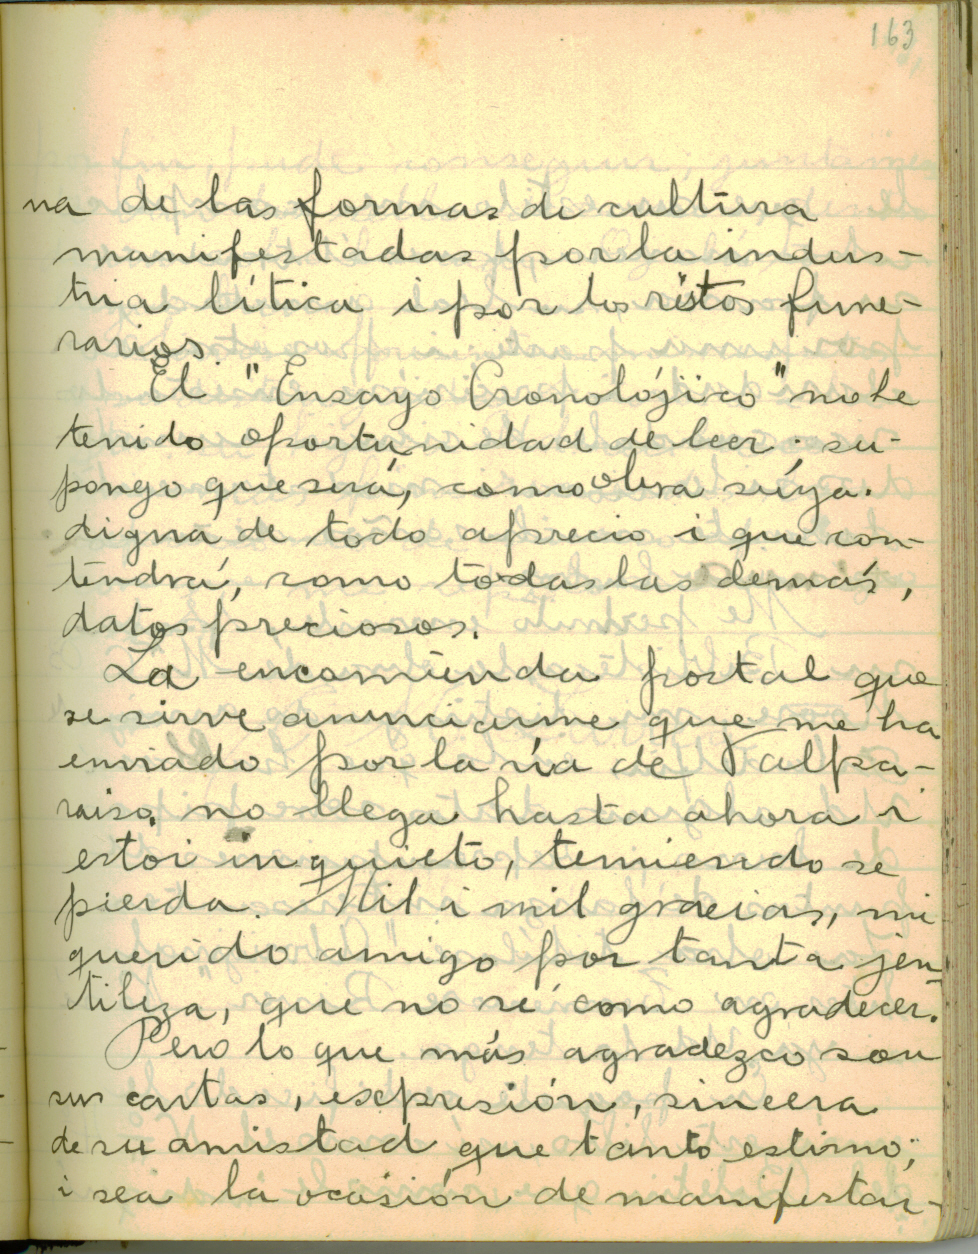 163
na de las formas de cultura
manifestadas por la indus-
tria lítica i por los ristos fune-
rarios.
El "Ensayo Cronolójico" no he
tenido oportunidad de leer. su-
pongo que será, como obra súya.
digna de todo aprecio i que con-
tendrá, como todas las demás,
datos preciosos.
La encomienda postal que
se sirve anunciarme que me ha
enviado por la vía de Valpa-
raiso, no llega hasta ahora i
estoi inquieto, temiendo se
pierda. Mil i mil gracias, mi
querido amigo por tanta jen-
tileza, que no sé como agradecer.
Pero lo que más agradezco son
sus cartas, expresión, sincera
de su amistad que tanto estimo;
i sea la ocasión de manifestar-